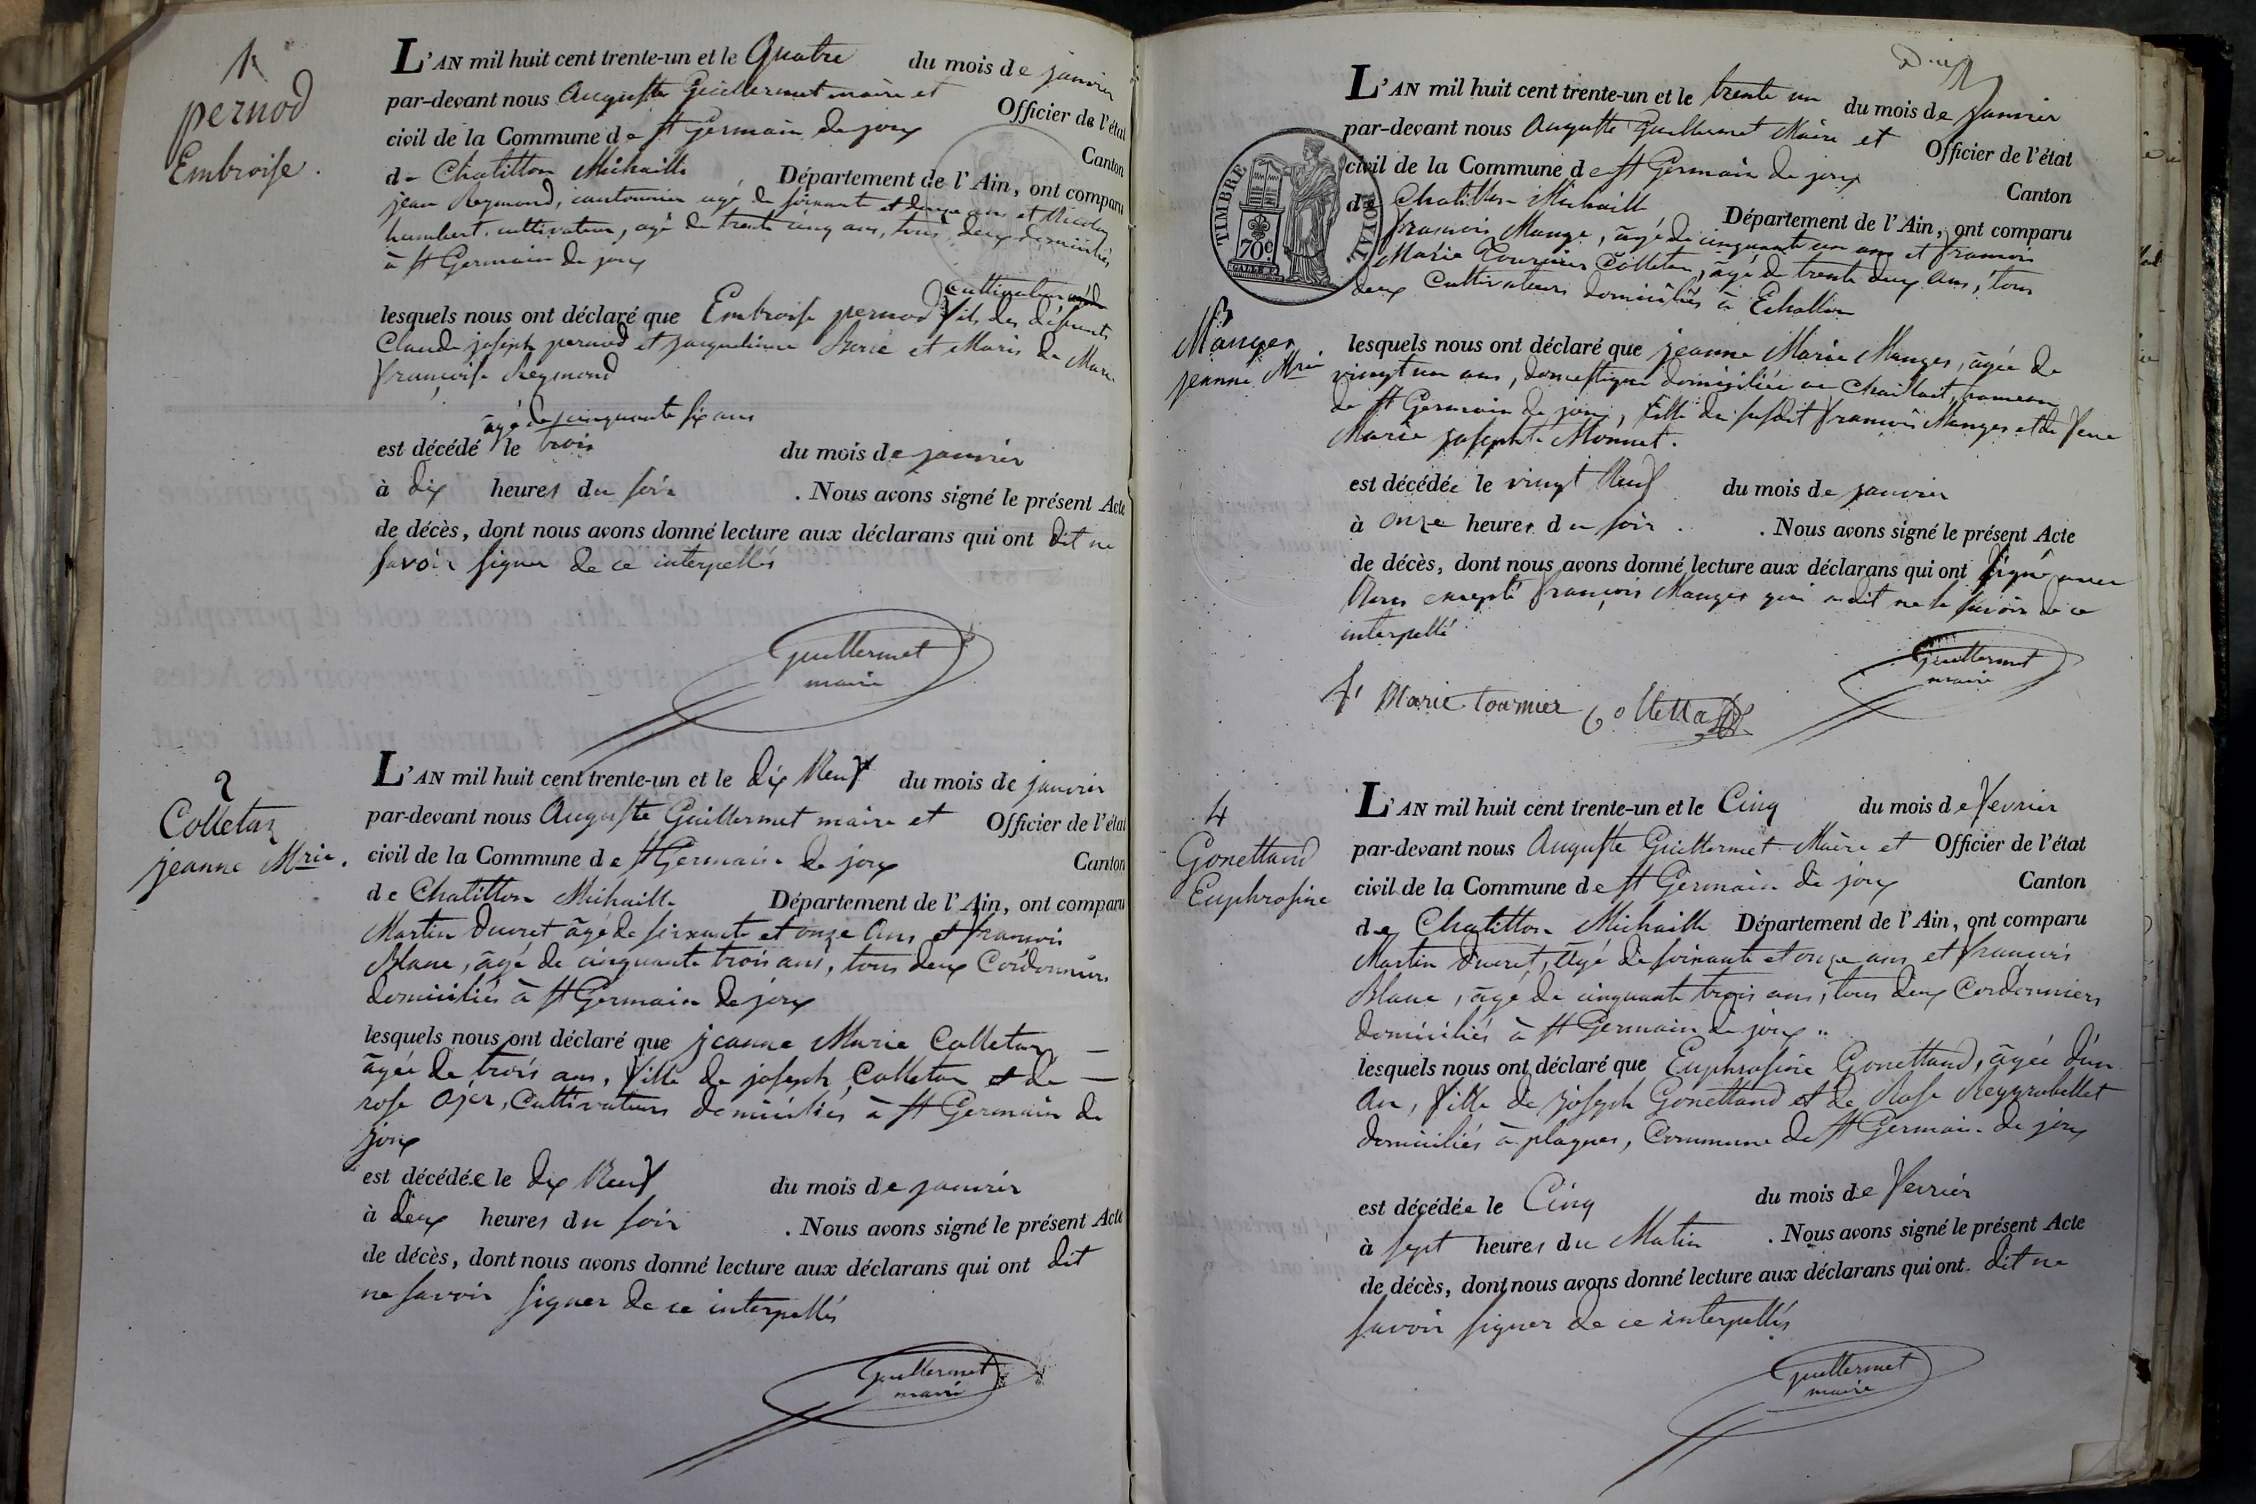 1
pernod
Embroise.
L'AN mil huit cent trente-un et le Quatre du mois de janvier
par-devant nous Auguste Guillermet maire et Officier de l'état
civil de la Commune de St Germain de joux Canton
de Chatillon Michaille Département de l'Ain, ont comparu
jean Reymond, cantonnier agé de soixante et douze ans et Nicolas
humbert cultivateur, agé de trente cinq ans, tous deux domiciliés
à St Germain de joux
cultivateur
lesquels nous ont déclaré que Embroise pernod fils des défunts
Claude joseph pernod et jacqueline et Maris de Marie
françoise Reymond
âgé de cinquante six ans
est décédé le trois du mois de janvier
à dix heures du soir . Nous avons signé le présent Acte
de décès, dont nous avons donné lecture aux déclarans qui ont dit ne
savoir signer de ce interpellés
Guillermet
maire
2
Colletaz
jeanne Mrie.
L'AN mil huit cent trente-un et le dix Neuf du mois de janvier
par-devant nous Auguste Guillermet maire et Officier de l'état
civil de la Commune de St Germain de joux Canton
de Chatillon Michaille Département de l'Ain, ont comparu
Martin Ducret âgé de soixante et onze ans et francois
Blanc, âgé de cinquante trois ans, tous deux Cordonniers
domiciliés à St Germain de joux
lesquels nous ont déclaré que jeanne Marie Colletaz
âgée de trois ans, fille de joseph Colletaz et de
rose Ojer, Cultivateurs domiciliés à St Germain de
joux
est décédée le dix Neuf du mois de janvier
à deux heures du soir . Nous avons signé le présent Acte
de décès, dont nous avons donné lecture aux déclarans qui ont dit
ne savoir signer de ce interpellés
Guillermet
maire
TIMBRE ROYAL
70c
3
Manger
jeanne Mrie
L'AN mil huit cent trente-un et le trente un du mois de janvier
par-devant nous Auguste Guillermet Maire et Officier de l'état
civil de la Commune de St Germain de joux Canton
de Chatillon Michaille Département de l'Ain, ont comparu
francois Mange, âgé de cinquante un ans et francois
Marie Tournier Colletaz, âgé de trente deux ans, tous
deux Cultivateurs domiciliés à Echallon
lesquels nous ont déclaré que jeanne Marie Manger, âgée de
vingt un ans, domestique domiciliée au hameau
de St Germain de joux, fille du susdit francois Manger et de feue
Marie josephte Monnet.
est décédée le vingt Neuf du mois de janvier
à onze heures du soir . Nous avons signé le présent Acte
de décès, dont nous avons donné lecture aux déclarans qui ont signé avec
Nous excepté françois Manger qui a dit ne le savoir de ce
interpellé
Guillermet
maire
fs Marie tournier Colletta
4
Gonettand
Euphrosine
L'AN mil huit cent trente-un et le Cinq du mois de fevrier
par-devant nous Auguste Guillermet Maire et Officier de l'état
civil de la Commune de St Germain de joux Canton
de Chatillon Michaille Département de l'Ain, ont comparu
Martin Ducret, âgé de soixante et onze ans et francois
Blanc, âgé de cinquante trois ans, tous deux Cordonniers
domiciliés à St Germain de joux
lesquels nous ont déclaré que Euphrosine Gonettand, âgée d'un
An, fille de joseph Gonettand et de Rose Reygrobellet
domiciliés à plagnes, Commune de St Germain de joux
est décédée le Cinq du mois de fevrier
à sept heures du Matin . Nous avons signé le présent Acte
de décès, dont nous avons donné lecture aux déclarans qui ont dit ne
savoir signer de ce interpellés
Guillermet
maire